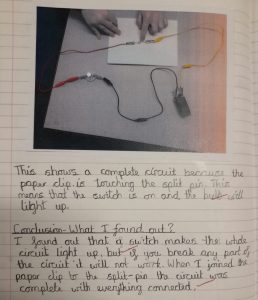 This shows a complete circuit because the
paper clip is touching the split pin. This
means that the switch is on and the bulb will
light up.
Conclusion-What I found out?
I found out that a switch makes the whole
circuit light up, but if you break any part of
the circuit it will not work. When I joined the
paper clip to the split-pin the circuit was
complete with everything connected.